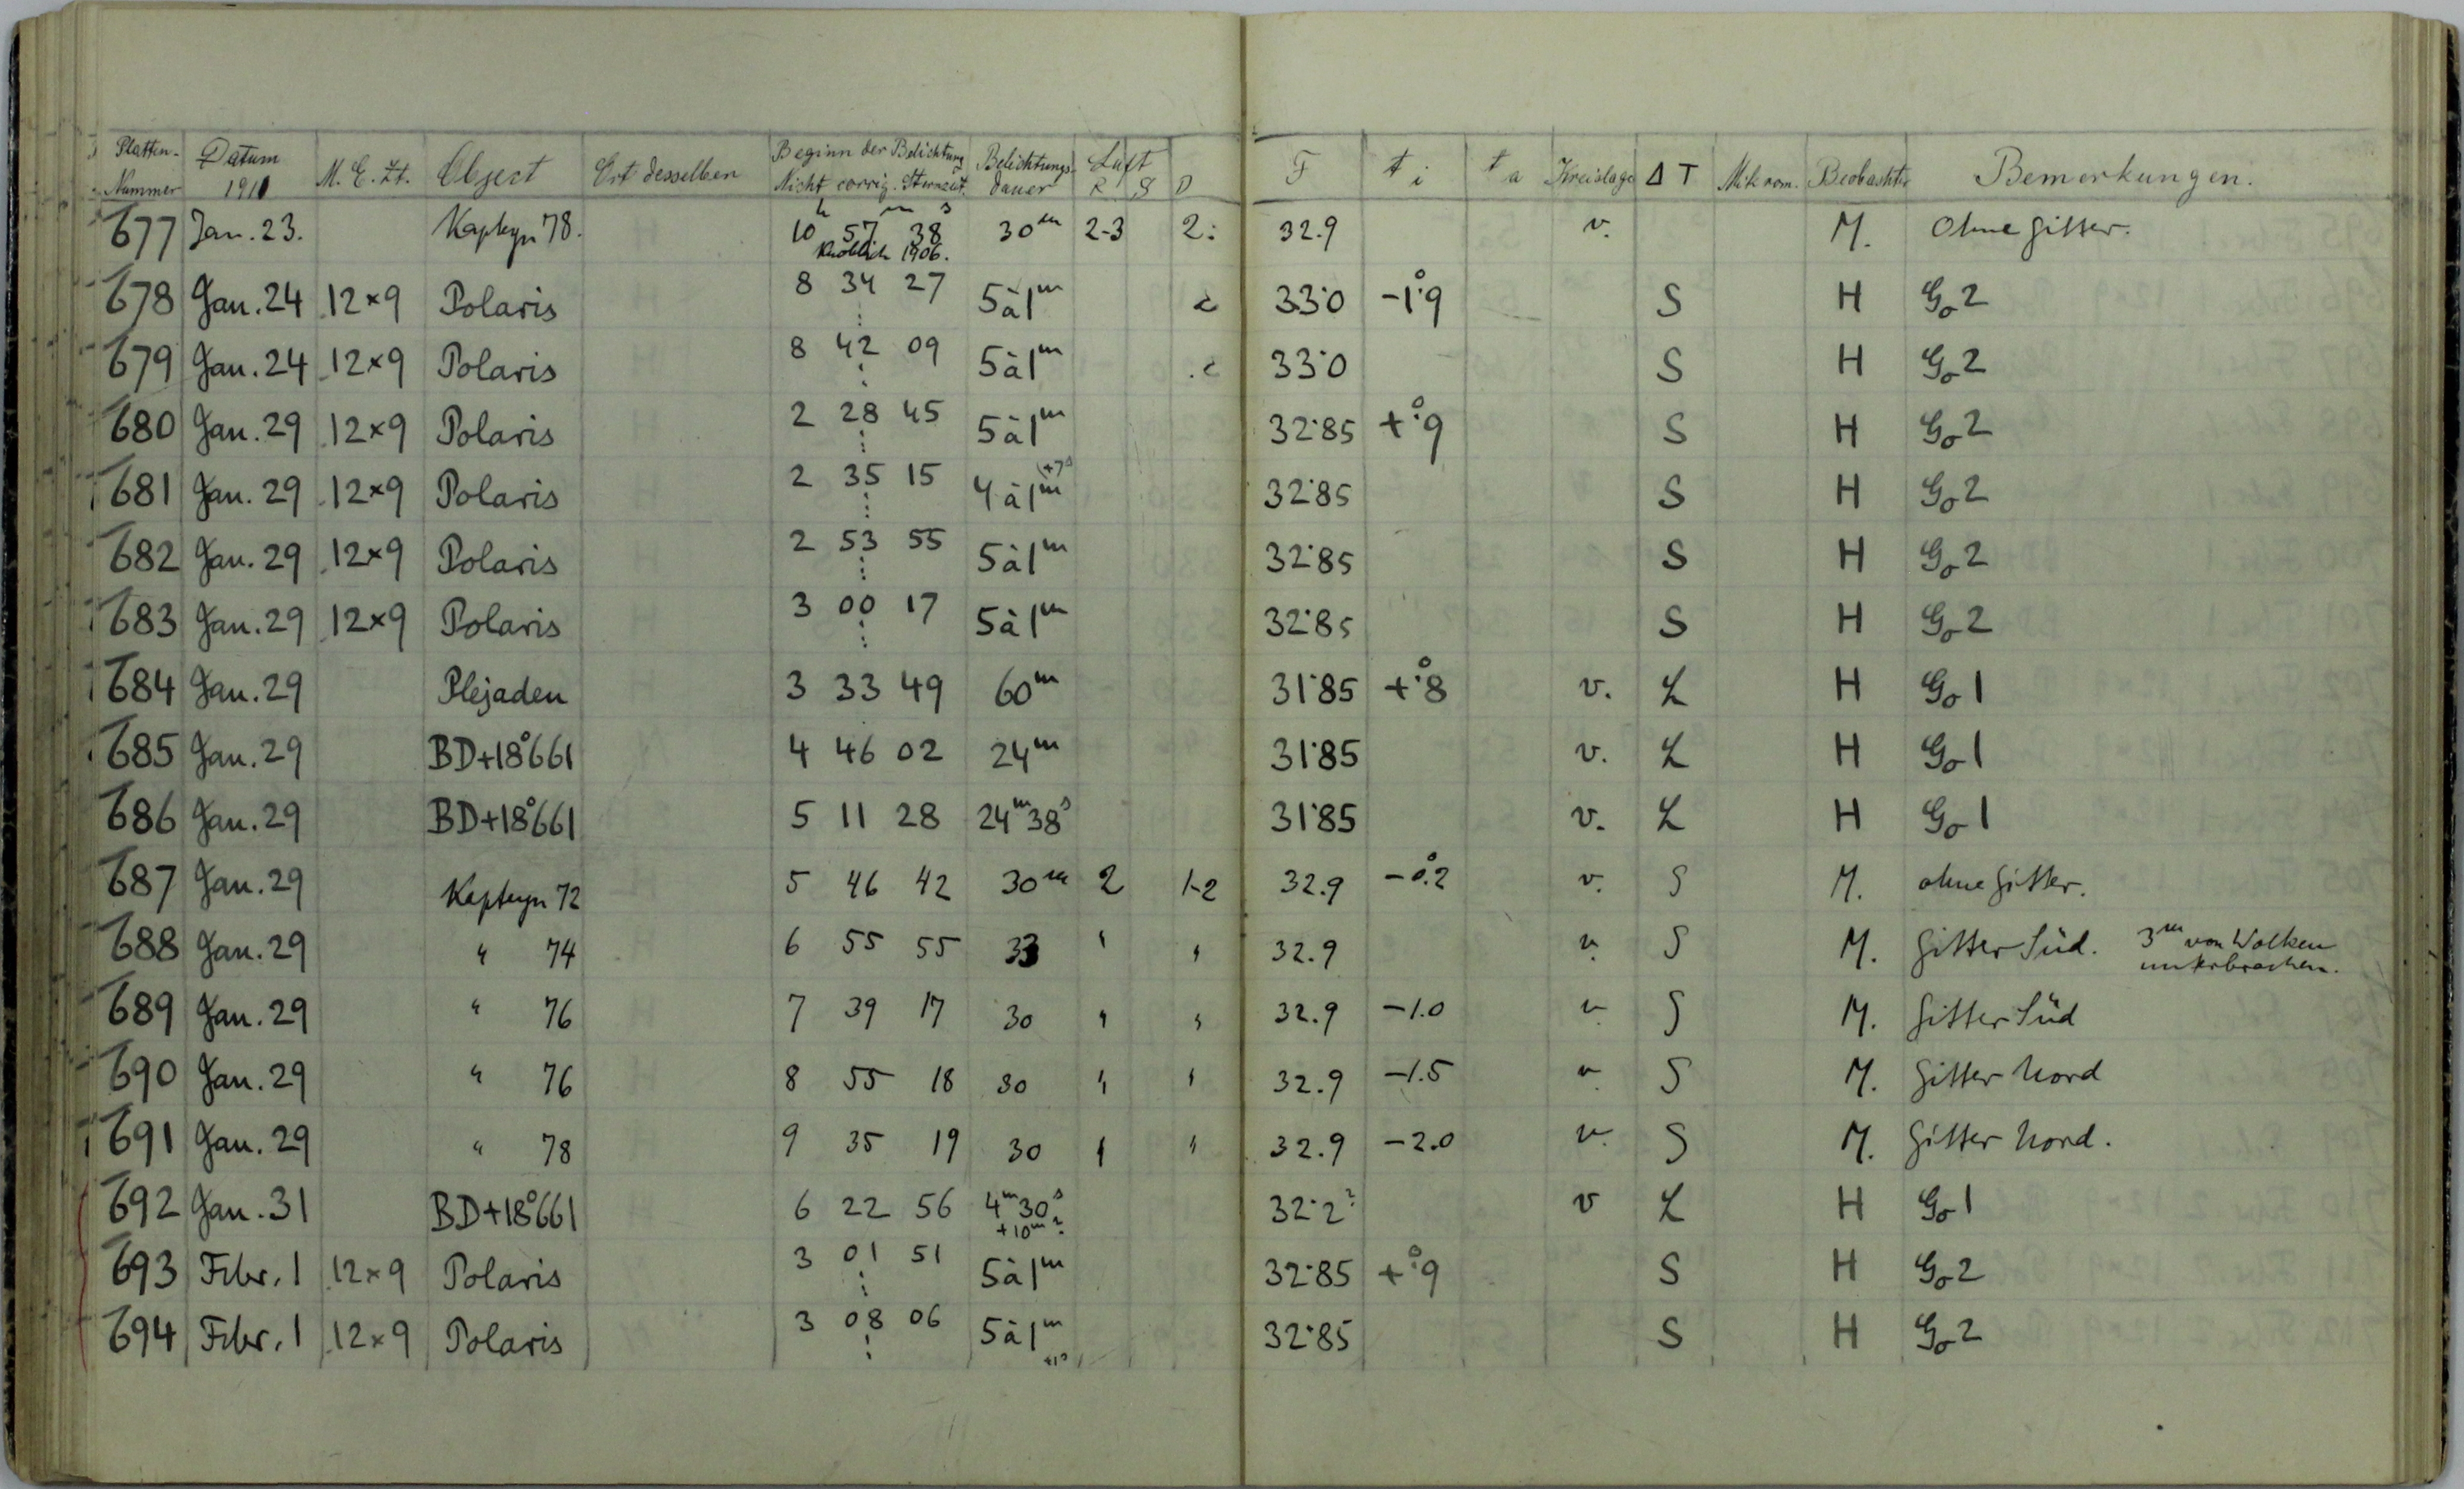 Platten-Nummer Datum 1911 M. E. Zt. Object Ort desselben Beginn der Belichtung Nicht corrig. Sternzeit. Belichtungs-dauer Luft R S D F t i t a Kreislage Δ T Mikrom. Beobachter Bemerkungen.
677 Jan. 23. Kapteyn 78. 10h 57m 38s 30m 2-3 2: 32.9 v. M. Ohne Gitter.
Knoblich 1906.
678 Jan. 24 12×9 Polaris 8 34 27 5à1m 33.0 -1°.9 S H Go 2
679 Jan. 24 12×9 Polaris 8 42 09 5à1m 33.0 S H Go 2
680 Jan. 29 12×9 Polaris 2 28 45 5à1m 32.85 +°.9 S H Go 2
681 Jan. 29 12×9 Polaris 2 35 15 4à1m (+7s 32.85 S H Go 2
682 Jan. 29 12×9 Polaris 2 53 55 5à1m 32.85 S H Go 2
683 Jan. 29 12×9 Polaris 3 00 17 5à1m 32.85 S H Go 2
684 Jan. 29 Plejaden 3 33 49 60m 31.85 +°.8 v. L H Go 1
685 Jan. 29 BD+18°661 4 46 02 24m 31.85 v. L H Go 1
686 Jan. 29 BD+18°661 5 11 28 24m38s 31.85 v. L H Go 1
687 Jan. 29 Kapteyn 72 5 46 42 30m 2 1-2 32.9 -0°.2 v. S M. ohne Gitter.
688 Jan. 29 " 74 6 55 55 33 " " 32.9 v. S M. Gitter Süd. 3m von Wolken unterbrochen.
689 Jan. 29 " 76 7 39 17 30 " " 32.9 -1.0 v. S M. Gitter Süd
690 Jan. 29 " 76 8 55 18 30 " " 32.9 -1.5 v. S M. Gitter Nord
691 Jan. 29 " 78 9 35 19 30 " " 32.9 -2.0 v. S M. Gitter Nord.
692 Jan. 31 BD+18°661 6 22 56 4m30s +10m? 32.2? v L H Go 1
693 Febr. 1 12×9 Polaris 3 01 51 5à1m 32.85 +°.9 S H Go 2
694 Febr. 1 12×9 Polaris 3 08 06 5à1m +1s 32.85 S H Go 2